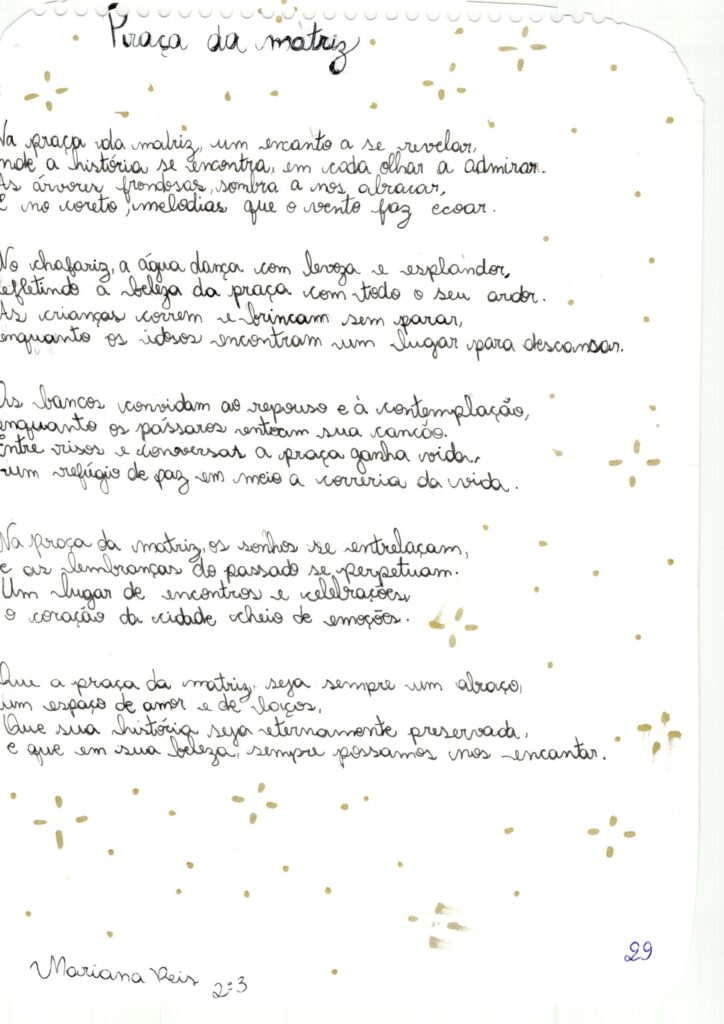 Praça da matriz
Na praça da matriz, um encanto a se revelar,
onde a história se encontra, em cada olhar a admirar.
As árvores frondosas, sombra a nos abraçar,
E no coreto, melodias que o vento faz ecoar.
No chafariz, a água dança com leveza e esplandor,
refletindo a beleza da praça com todo o seu ardor.
As crianças correm e brincam sem parar,
enquanto os idosos encontram um lugar para descansar.
Os bancos convidam ao repouso e à contemplação,
enquanto os pássaros entoam sua canção.
Entre risos e conversas a praça ganha vida,
um refúgio de paz em meio a correria da vida.
Na praça da matriz, os sonhos se entrelaçam,
e as lembranças do passado se perpetuam.
Um lugar de encontros e celebrações,
o coração da cidade cheio de emoções.
Que a praça da matriz, seja sempre um abraço,
um espaço de amor e de laços,
Que sua história seja eternamente preservada,
e que em sua beleza, sempre possamos nos encantar.
Mariana Reis 2:3
29